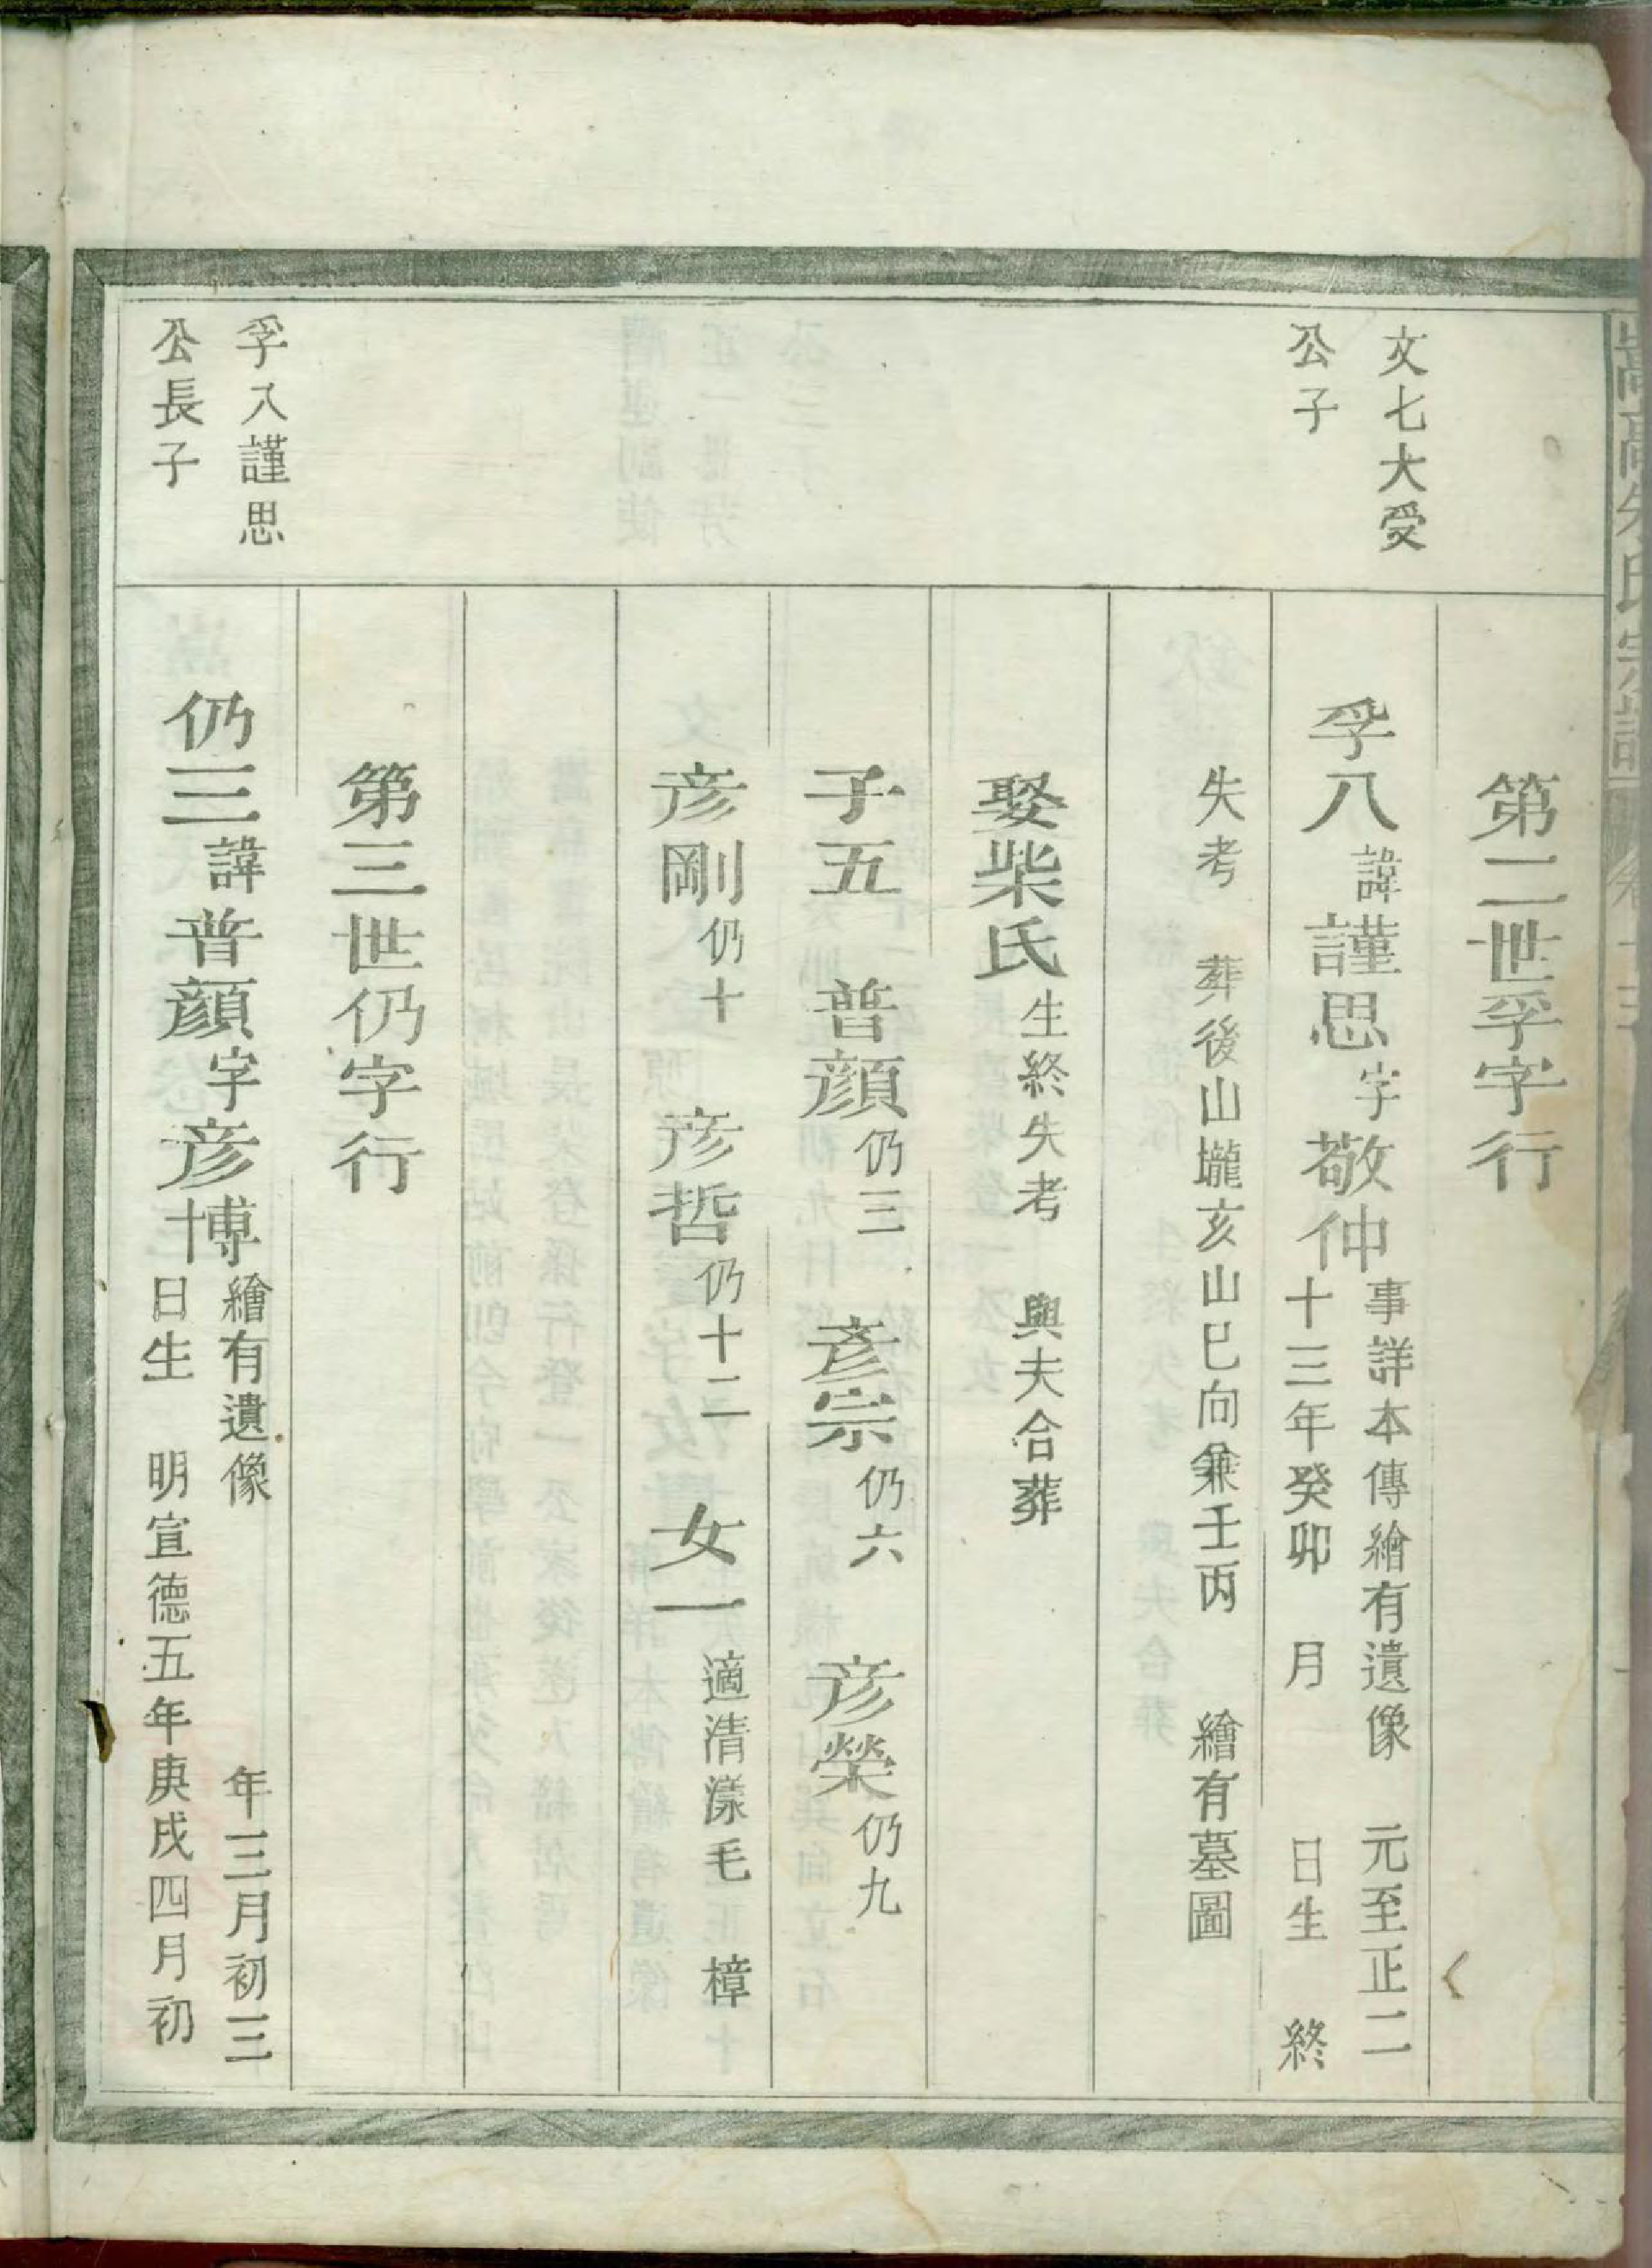 嵩高朱氏宗譜
第二世孚字行
文七大受
公子
孚八諱謹思字敬仲事詳本傳繪有遺像　元至正二
十三年癸卯　月　　日生　終
失考　葬後山壠亥山巳向兼壬丙　繪有墓圖
娶柴氏生終失考　與夫合葬
子五　普顏仍三　彥宗仍六　彥榮仍九
彥剛仍十　彥哲仍十二　女一適清漾毛　樟
第三世仍字行
孚八謹思
公長子
仍三諱普顏字彥博繪有遺像　　　　年三月初三
日生　明宣德五年庚戌四月初